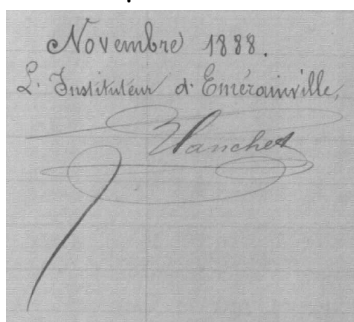 Novembre 1888.
L. Instituteur d'Emérainville,
Planchet